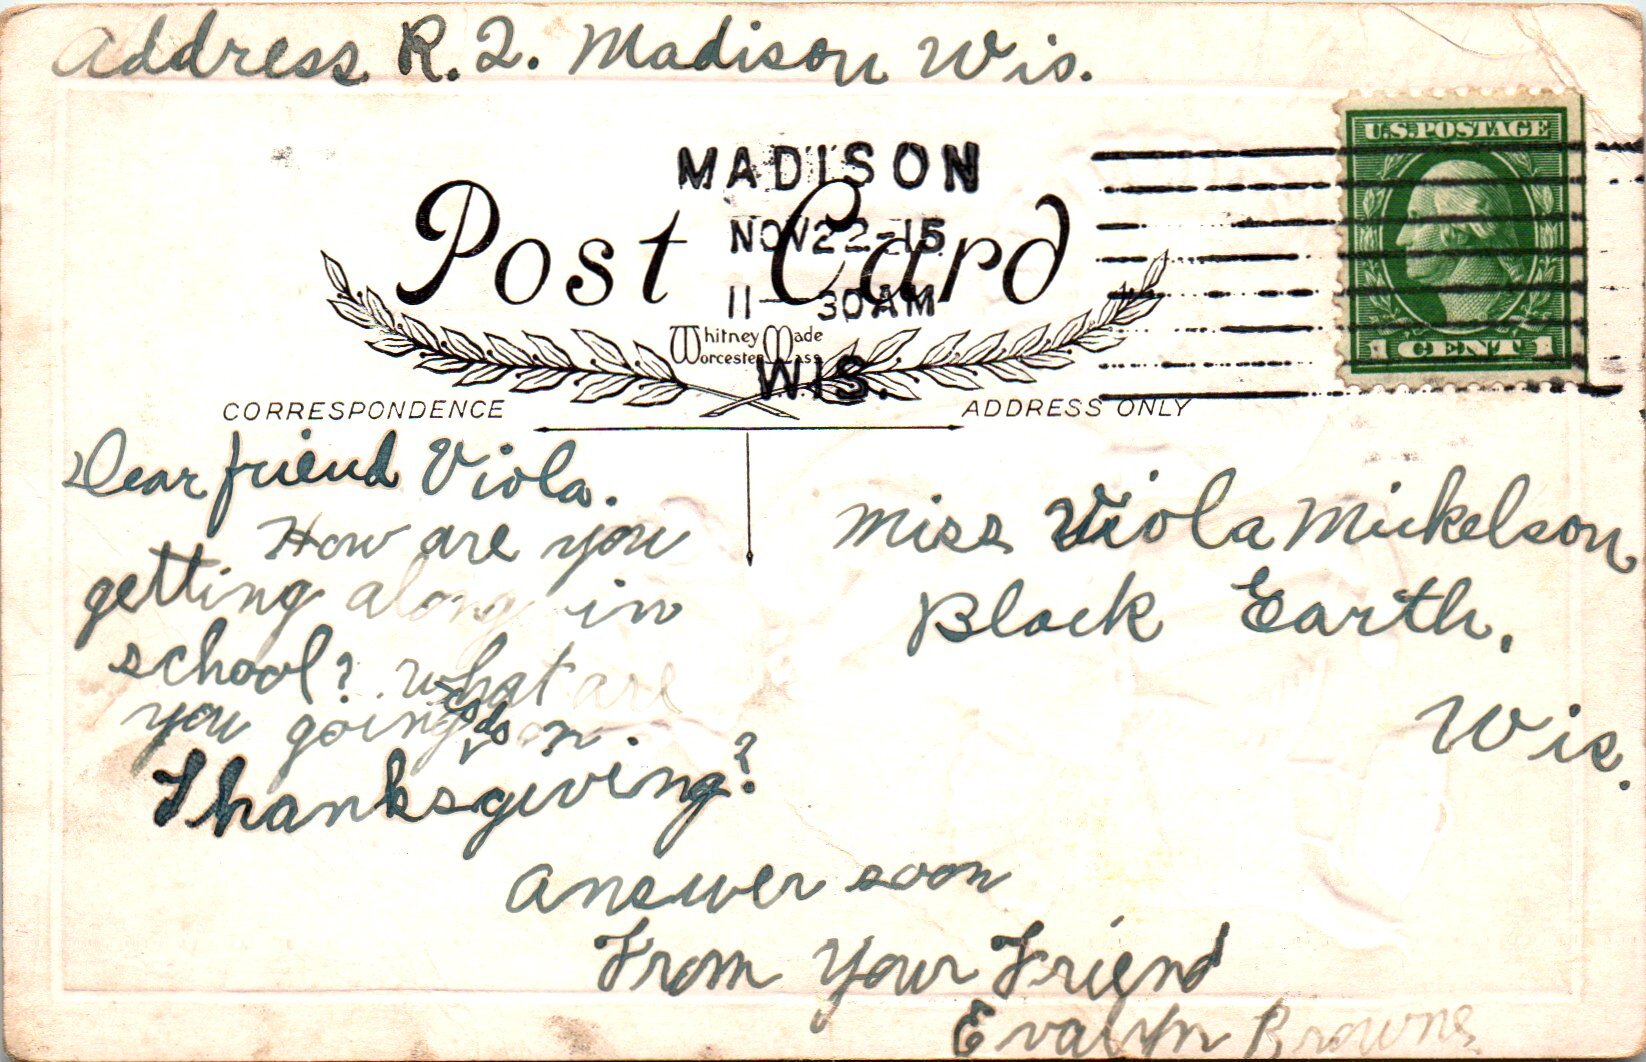 Address R.2. Madison Wis.
U.S. POSTAGE
MADISON
NOV 22-15
11-30AM
WIS.
Post Card
Whitney Made
Worcester Mass
1 CENT 1
CORRESPONDENCE
ADDRESS ONLY
Dear friend Viola.
How are you
getting along in
school? What are
you going to do on
Thanksgiving?
Answer soon
From Your Friend
Evalyn Browne
Miss Viola Mickelson
Black Earth,
Wis.